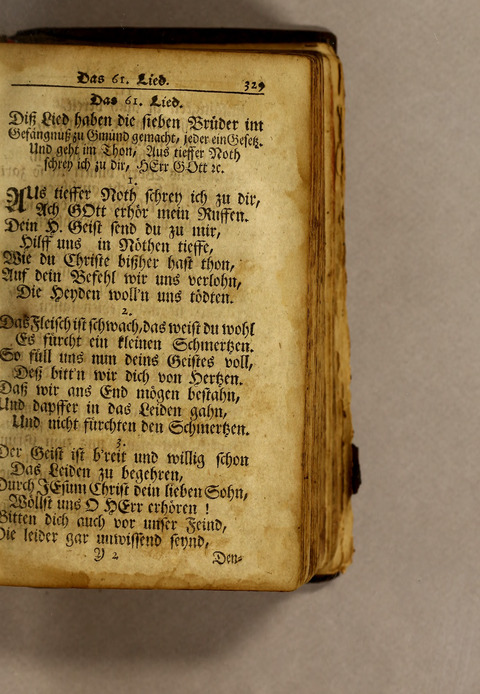 Das 61. Lied.
329
Das 61. Lied.
Diß Lied haben die sieben Brüder im
Gefängnuß zu Gmünd gemacht, jeder ein Gesetz.
Und geht im Thon, Aus tieffer Noth
schrey ich zu dir, HErr GOtt ꝛc.
1.
AUs tieffer Noth schrey ich zu dir,
Ach GOtt erhör mein Ruffen.
Dein H. Geist send du zu mir,
Hilff uns in Nöthen tieffe,
Wie du Christe bißher hast thon,
Auf dein Befehl wir uns verlohn,
Die Heyden woll'n uns tödten.
2.
Das Fleisch ist schwach, das weist du wohl
Es fürcht ein kleinen Schmertzen.
So füll uns nun deins Geistes voll,
Deß bitt'n wir dich von Hertzen.
Daß wir ans End mögen bestahn,
Und dapffer in das Leiden gahn,
Und nicht fürchten den Schmertzen.
3.
Der Geist ist b'reit und willig schon
Das Leiden zu begehren,
Durch JEsum Christ dein lieben Sohn,
Wöllst uns O HErr erhören !
Bitten dich auch vor unser Feind,
Die leider gar unwissend seynd,
Y 2
Den-